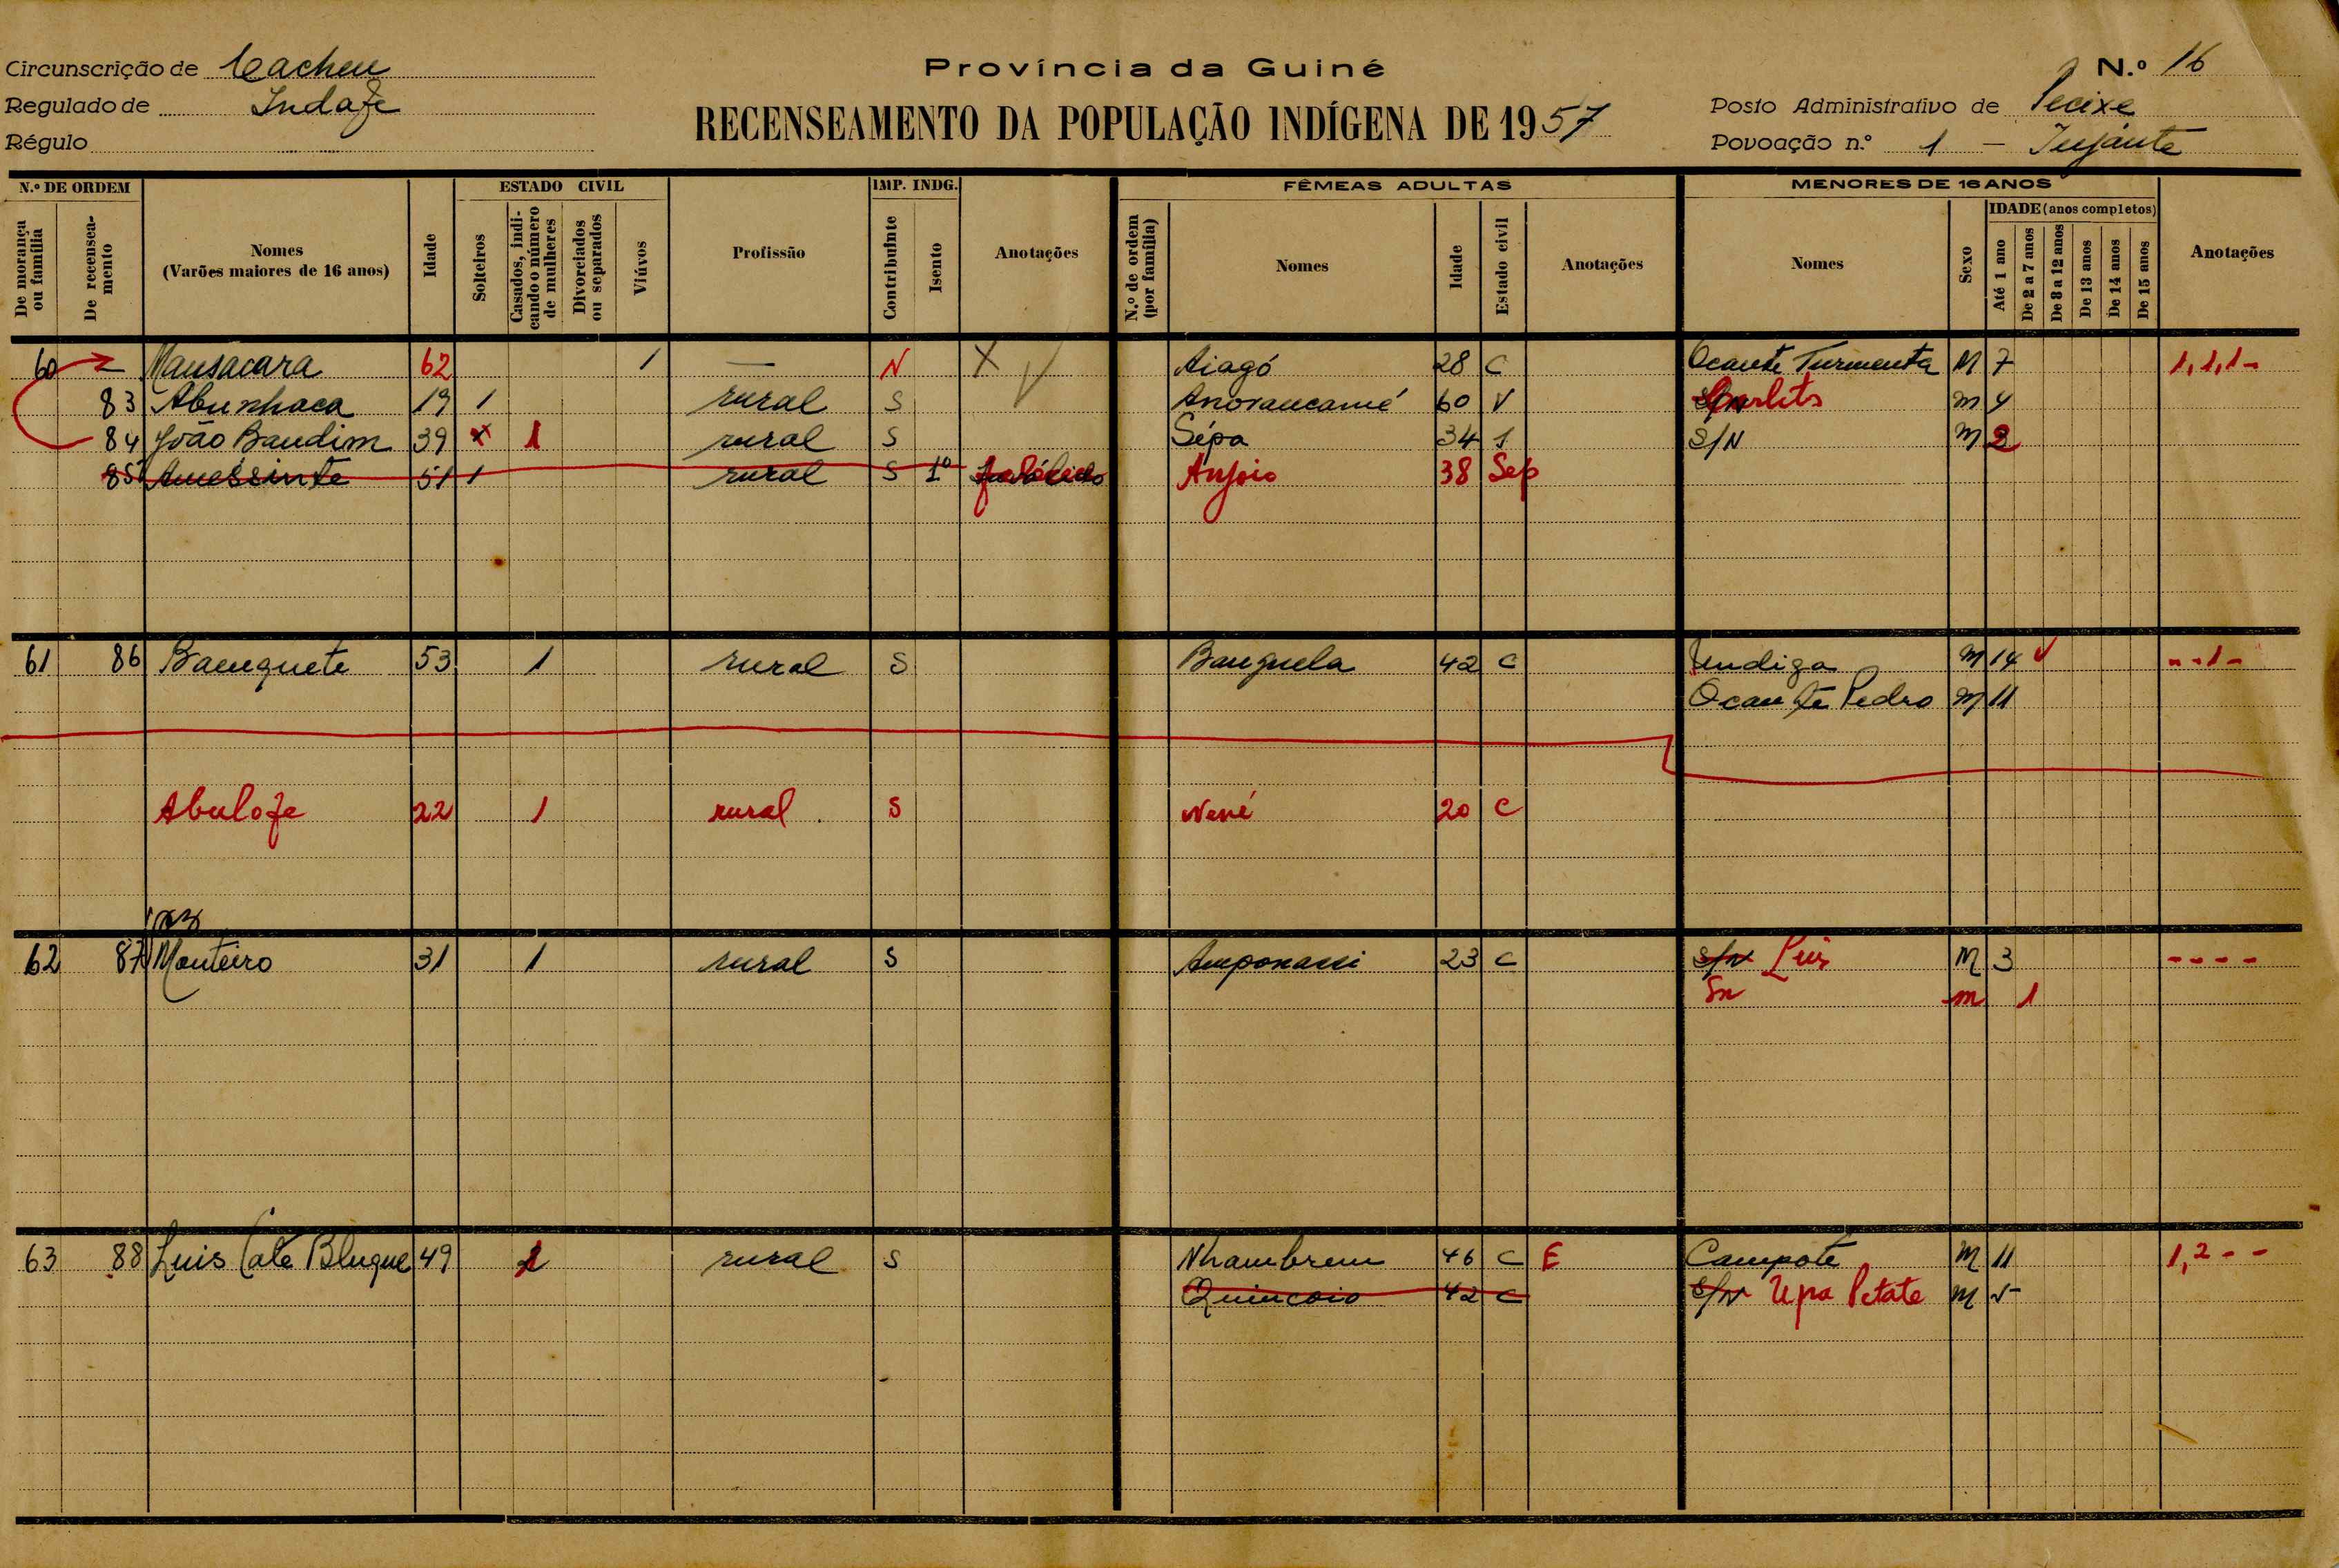 Circunscrição de Cacheu
Regulado de Indafe
Régulo
Província da Guiné
RECENSEAMENTO DA POPULAÇÃO INDÍGENA DE 1957
N.º 16
Posto Administrativo de Pecixe
Povoação n.º 1 –
N.º DE ORDEM
De morança ou família
De recenseamento
Nomes
(Varões maiores de 16 anos)
Idade
ESTADO CIVIL
Solteiros
Casados, indicando o número de mulheres
Divorciados ou separados
Viúvos
Profissão
IMP. INDG.
Contribuinte
Isento
Anotações
FÊMEAS ADULTAS
N.º de ordem (por família)
Nomes
Idade
Estado civil
Anotações
MENORES DE 16 ANOS
Nomes
Sexo
IDADE (anos completos)
Até 1 ano
De 2 a 7 anos
De 8 a 12 anos
De 13 anos
De 14 anos
De 15 anos
Anotações
60 – Mansacara 62 1 — N X Aiagó 28 C Ocante Turmenta M 7 1,1,1-
83 Abunhaca 19 1 rural S 60 V Carlitos m 4
84 João Bandim 39 x 1 rural S Sépa 34 1 S/N M 2
85 Amessinte 51 1 rural S 1º falecido Anjoio 38 Sep
61 86 Banquete 53 1 rural S Banguela 42 C Undiga M 14 - - 1 -
Ocante Pedro M 11
Abulofe 22 1 rural S Nené 20 C
62 87 Monteiro 31 1 rural S Amponassi 23 C S/N Luis M 3 - - - -
Sn m 1
63 88 Luis Cale Bluque 49 1 rural S Nhambrem 46 C E Campote M 11 1,2 - -
Quincoio 42 C S/N Upa Petate M 5